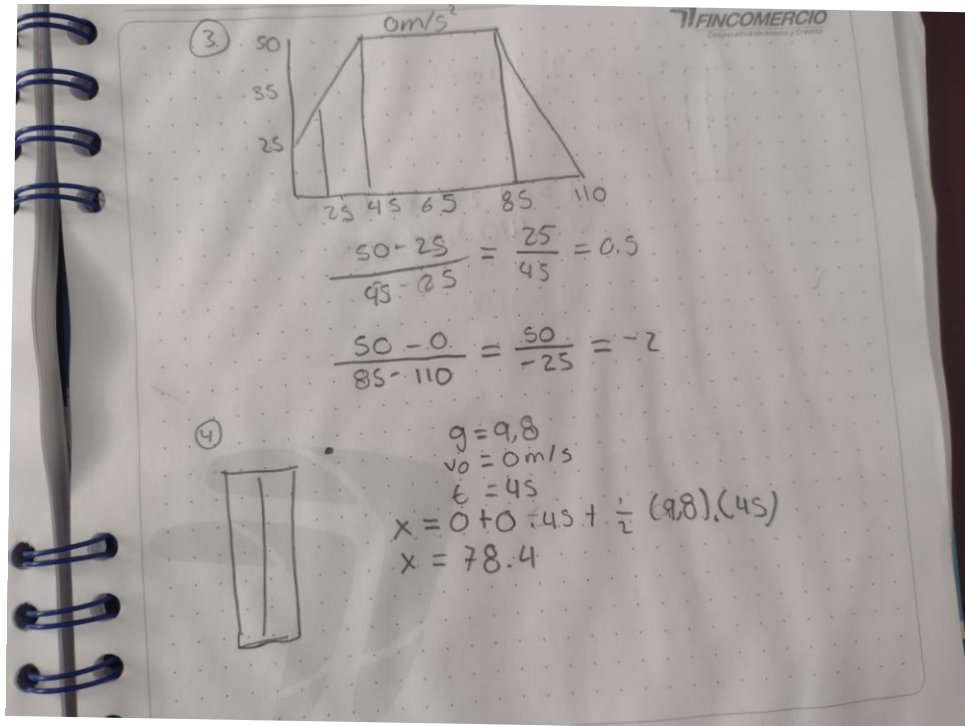 FINCOMERCIO
Cooperativa de Ahorro y Crédito
3
0m/s²
50
35
25
25 45 65 85 110
50-25 / 45-25 = 25 / 45 = 0.5
50-0 / 85-110 = 50 / -25 = -2
4
g = 9,8
vo = 0m/s
t = 4s
x = 0+0·4s + 1/2 (9,8).(4s)
x = 78.4